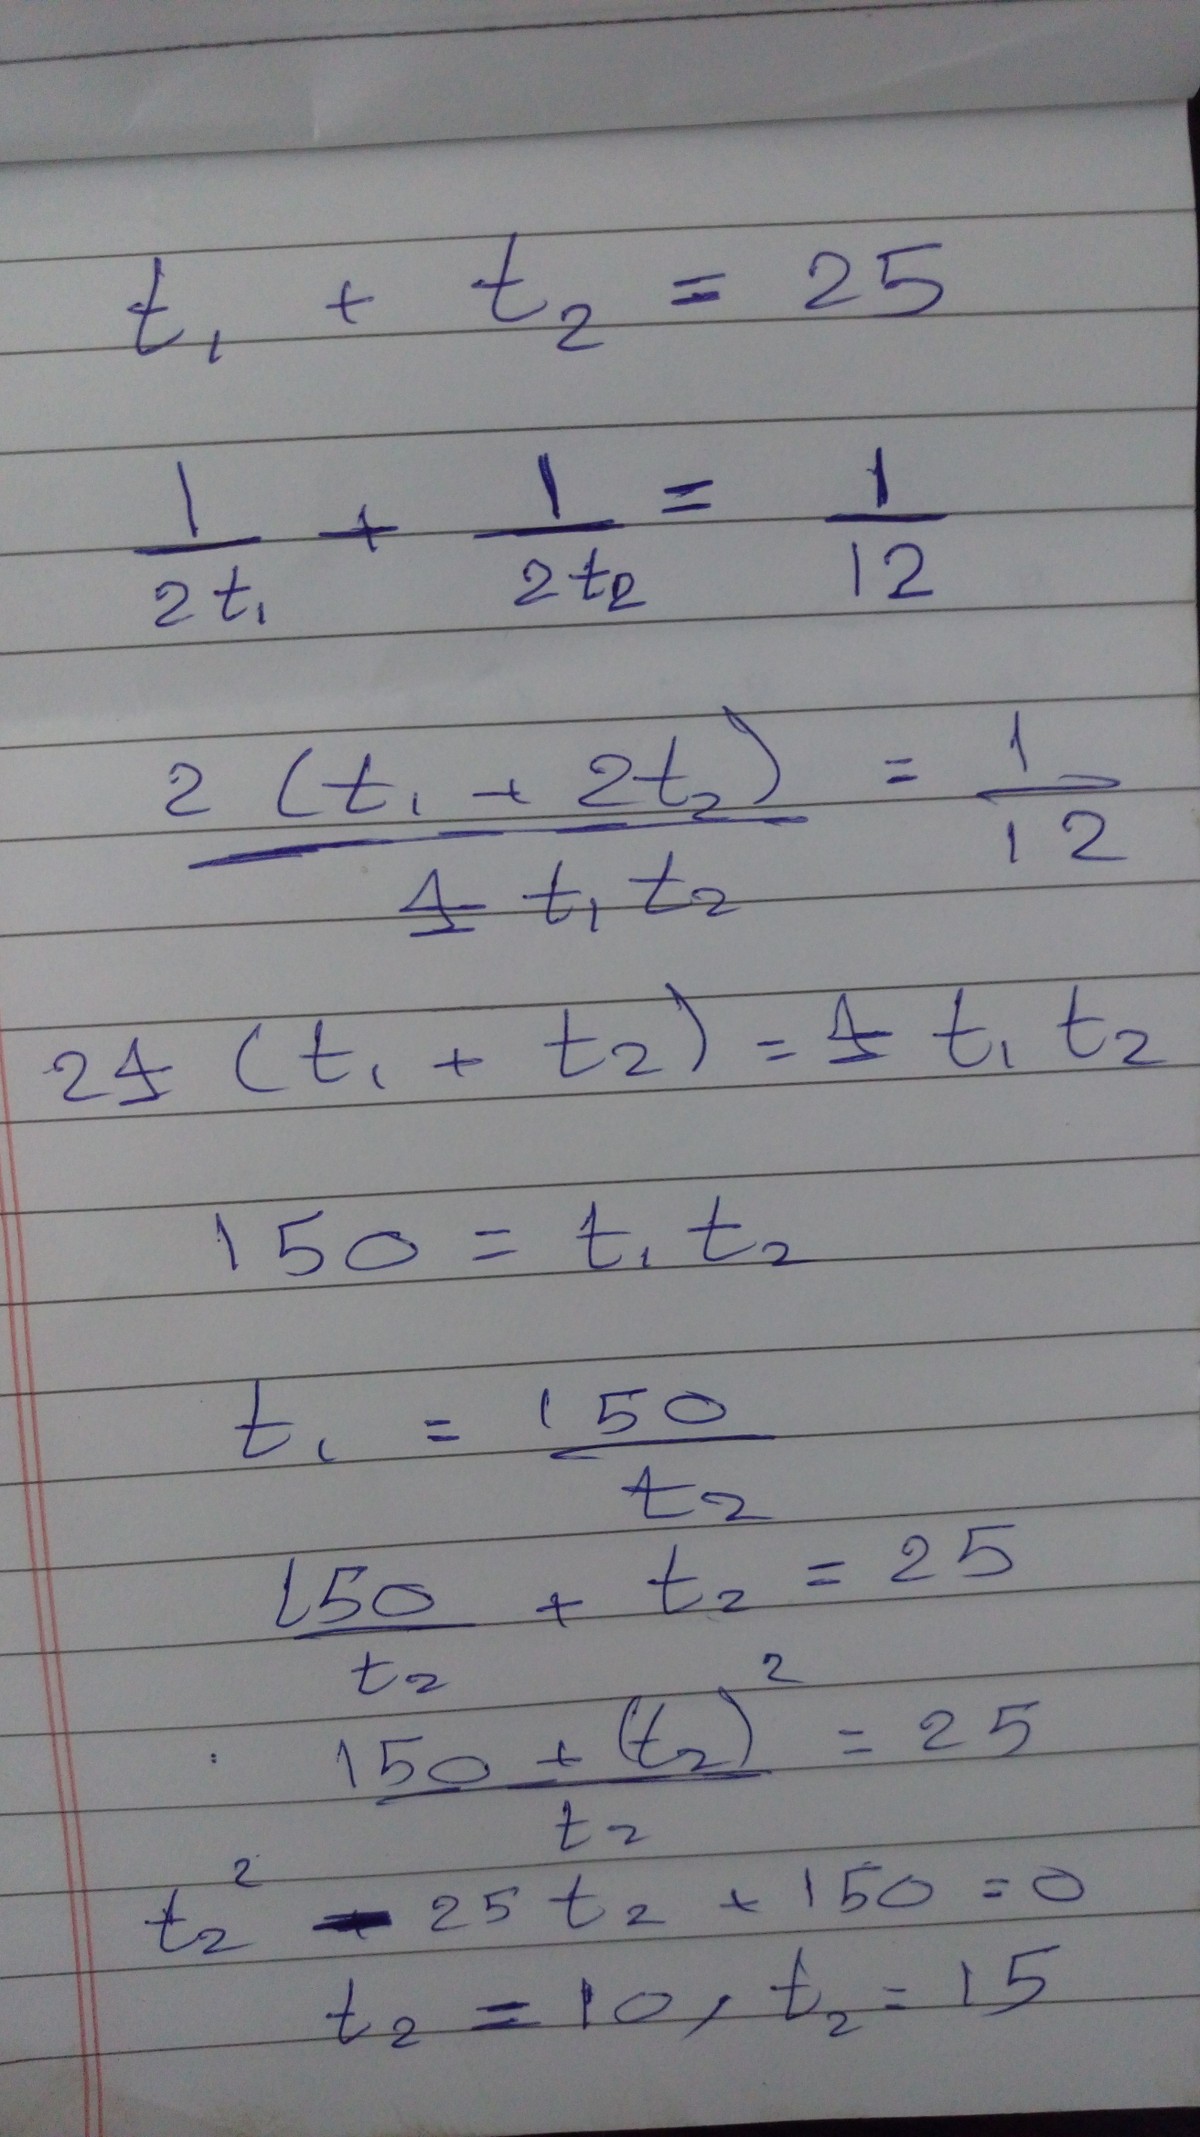 t₁ + t₂ = 25
1/2t₁ + 1/2t₂ = 1/12
2 (t₁ + 2t₂) / 4 t₁ t₂ = 1/12
24 (t₁ + t₂) = 4 t₁ t₂
150 = t₁ t₂
t₁ = 150/t₂
150/t₂ + t₂ = 25
150 + (t₂)² / t₂ = 25
t₂² - 25 t₂ + 150 = 0
t₂ = 10, t₂ = 15